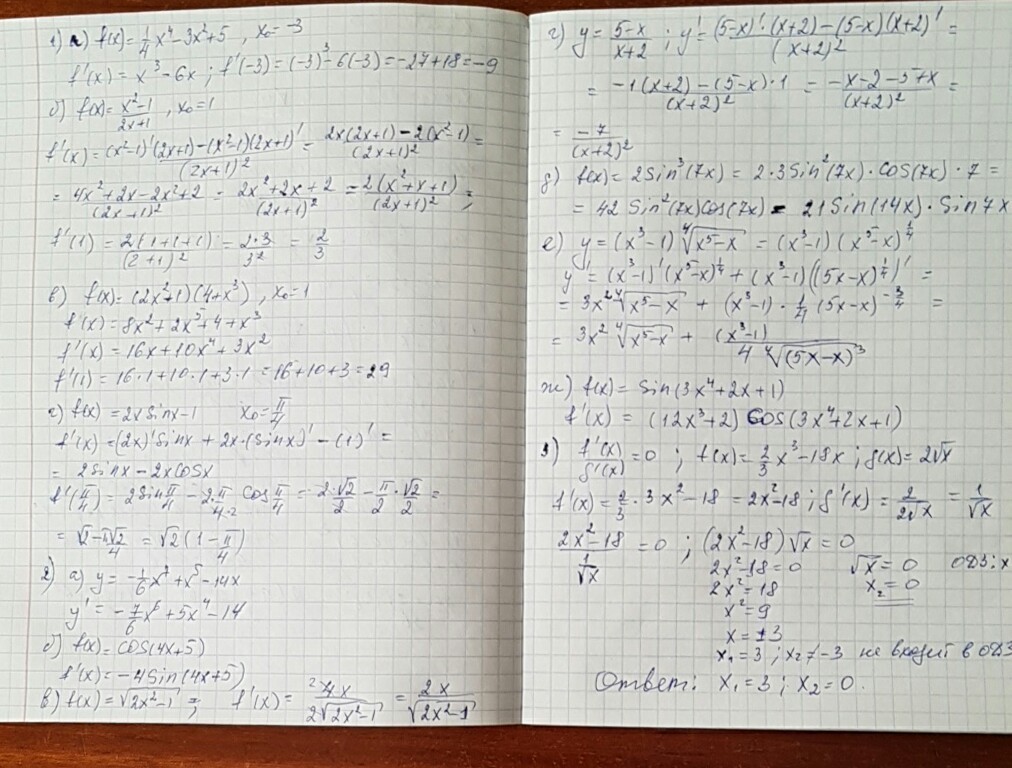 1) а) f(x) = 1/4 x⁴ - 3x² + 5 , x₀ = -3
f'(x) = x³ - 6x ; f'(-3) = (-3)³ - 6(-3) = -27 + 18 = -9
б) f(x) = (x² - 1)/(2x + 1) , x₀ = 1
f'(x) = ((x² - 1)'(2x + 1) - (x² - 1)(2x + 1)')/(2x + 1)² = (2x(2x + 1) - 2(x² - 1))/(2x + 1)² =
= (4x² + 2x - 2x² + 2)/(2x + 1)² = (2x² + 2x + 2)/(2x + 1)² = 2(x² + x + 1)/(2x + 1)² ;
f'(1) = 2(1 + 1 + 1)/(2 + 1)² = 2·3/3² = 2/3
в) f(x) = (2x² + 1)(4 + x³) , x₀ = 1
f'(x) = 8x² + 2x⁵ + 4 + x³
f'(x) = 16x + 10x⁴ + 3x²
f'(1) = 16·1 + 10·1 + 3·1 = 16 + 10 + 3 = 29
г) f(x) = 2x sinx - 1 x₀ = π/4
f'(x) = (2x)' sinx + 2x·(sinx)' - (1)' =
= 2sinx - 2x cosx
f'(π/4) = 2sin π/4 - 2π/4·2 cos π/4 = 2·√2/2 - π/2 · √2/2 =
= √2 - π√2/4 = √2(1 - π/4)
2) а) y = -1/6 x⁷ + x⁵ - 14x
y' = -7/6 x⁶ + 5x⁴ - 14
б) f(x) = cos(4x + 5)
f'(x) = -4sin(4x + 5)
в) f(x) = √(2x² - 1) ; f'(x) = 4x/(2√(2x² - 1)) = 2x/√(2x² - 1)
г) y = (5 - x)/(x + 2) ; y' = ((5 - x)'·(x + 2) - (5 - x)(x + 2)')/(x + 2)² =
= (-1(x + 2) - (5 - x)·1)/(x + 2)² = (-x - 2 - 5 + x)/(x + 2)² =
= -7/(x + 2)²
д) f(x) = 2sin³(7x) = 2·3sin²(7x)·cos(7x)·7 =
= 42 sin²(7x)cos(7x) = 21sin(14x)·sin7x
е) y = (x³ - 1) ⁴√(x⁵ - x) = (x³ - 1)(x⁵ - x)^(1/4)
y' = (x³ - 1)'(x⁵ - x)^(1/4) + (x³ - 1)((5x - x)^(1/4))' =
= 3x² ⁴√(x⁵ - x) + (x³ - 1)·1/4 (5x - x)^(-3/4) =
= 3x² ⁴√(x⁵ - x) + (x³ - 1)/(4 ⁴√(5x - x)³)
ж) f(x) = sin(3x⁴ + 2x + 1)
f'(x) = (12x³ + 2) cos(3x⁴ + 2x + 1)
3) f'(x)/g'(x) = 0 ; f(x) = 2/3 x³ - 18x ; g(x) = 2√x
f'(x) = 2/3 · 3x² - 18 = 2x² - 18 ; g'(x) = 2/(2√x) = 1/√x
(2x² - 18)/(1/√x) = 0 ; (2x² - 18)√x = 0
2x² - 18 = 0 √x = 0 ОДЗ: x
2x² = 18 x₂ = 0
x² = 9
x = ±3
x₁ = 3 ; x₂ ≠ -3 не входит в ОДЗ
Ответ: x₁ = 3 ; x₂ = 0.